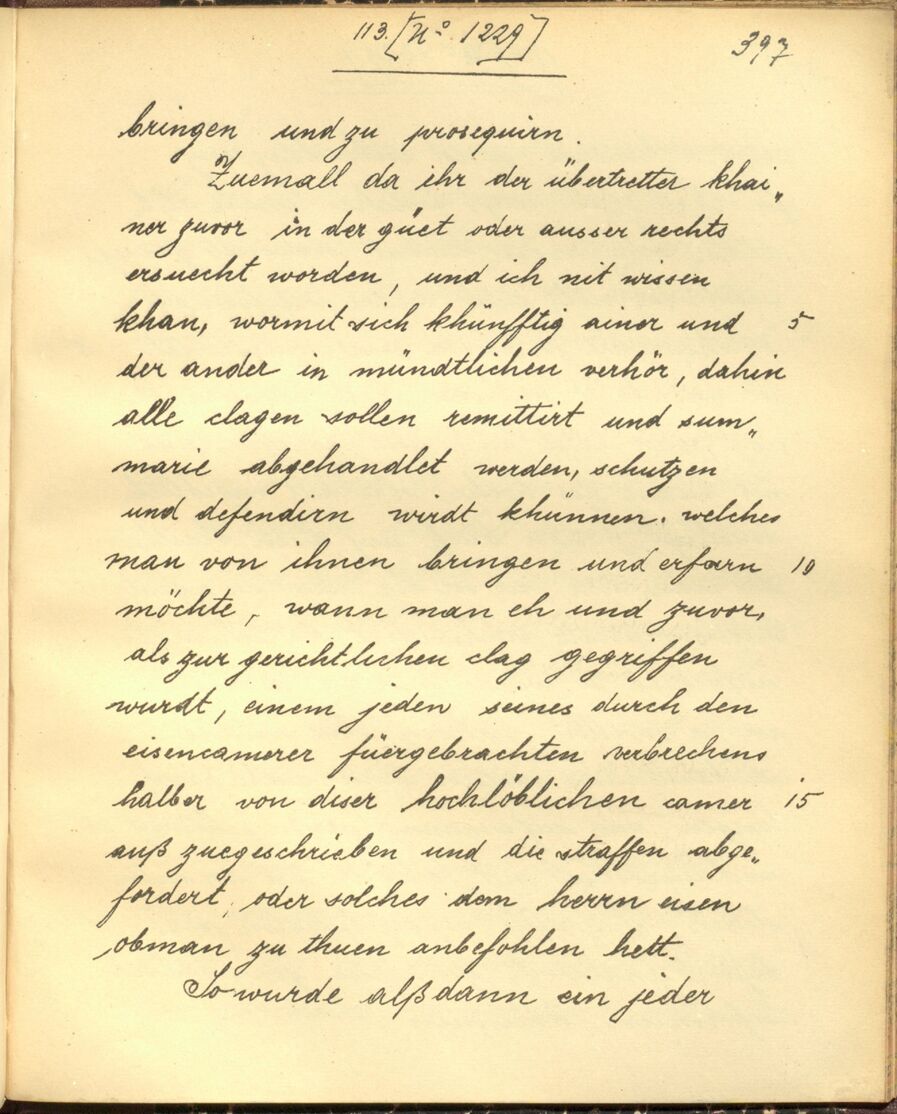 113. [No. 1229]
397
bringen und zu prosequirn.
Zuemall da ihr der übertretter khai„
ner zuvor in der güet oder ausser rechts
ersuecht worden, und ich nit wissen
khan, wormit sich khünfftig ainer und 5
der ander in mündtlichen verhör, dahin
alle clagen sollen remittirt und sum„
marie abgehandlet werden, schutzen
und defendirn wirdt khünnen. welches
man von ihnen bringen und erfarn 10
möchte, wann man eh und zuvor,
als zur gerichtlichen clag gegriffen
wurdt, einem jeden seines durch den
eisencamerer füergebrachten verbrechens
halber von diser hochlöblichen camer 15
auß zuegeschrieben und die straffen abge„
fordert, oder solches dem herrn eisen
obman zu thuen anbefohlen hett.
So wurde alßdann ein jeder